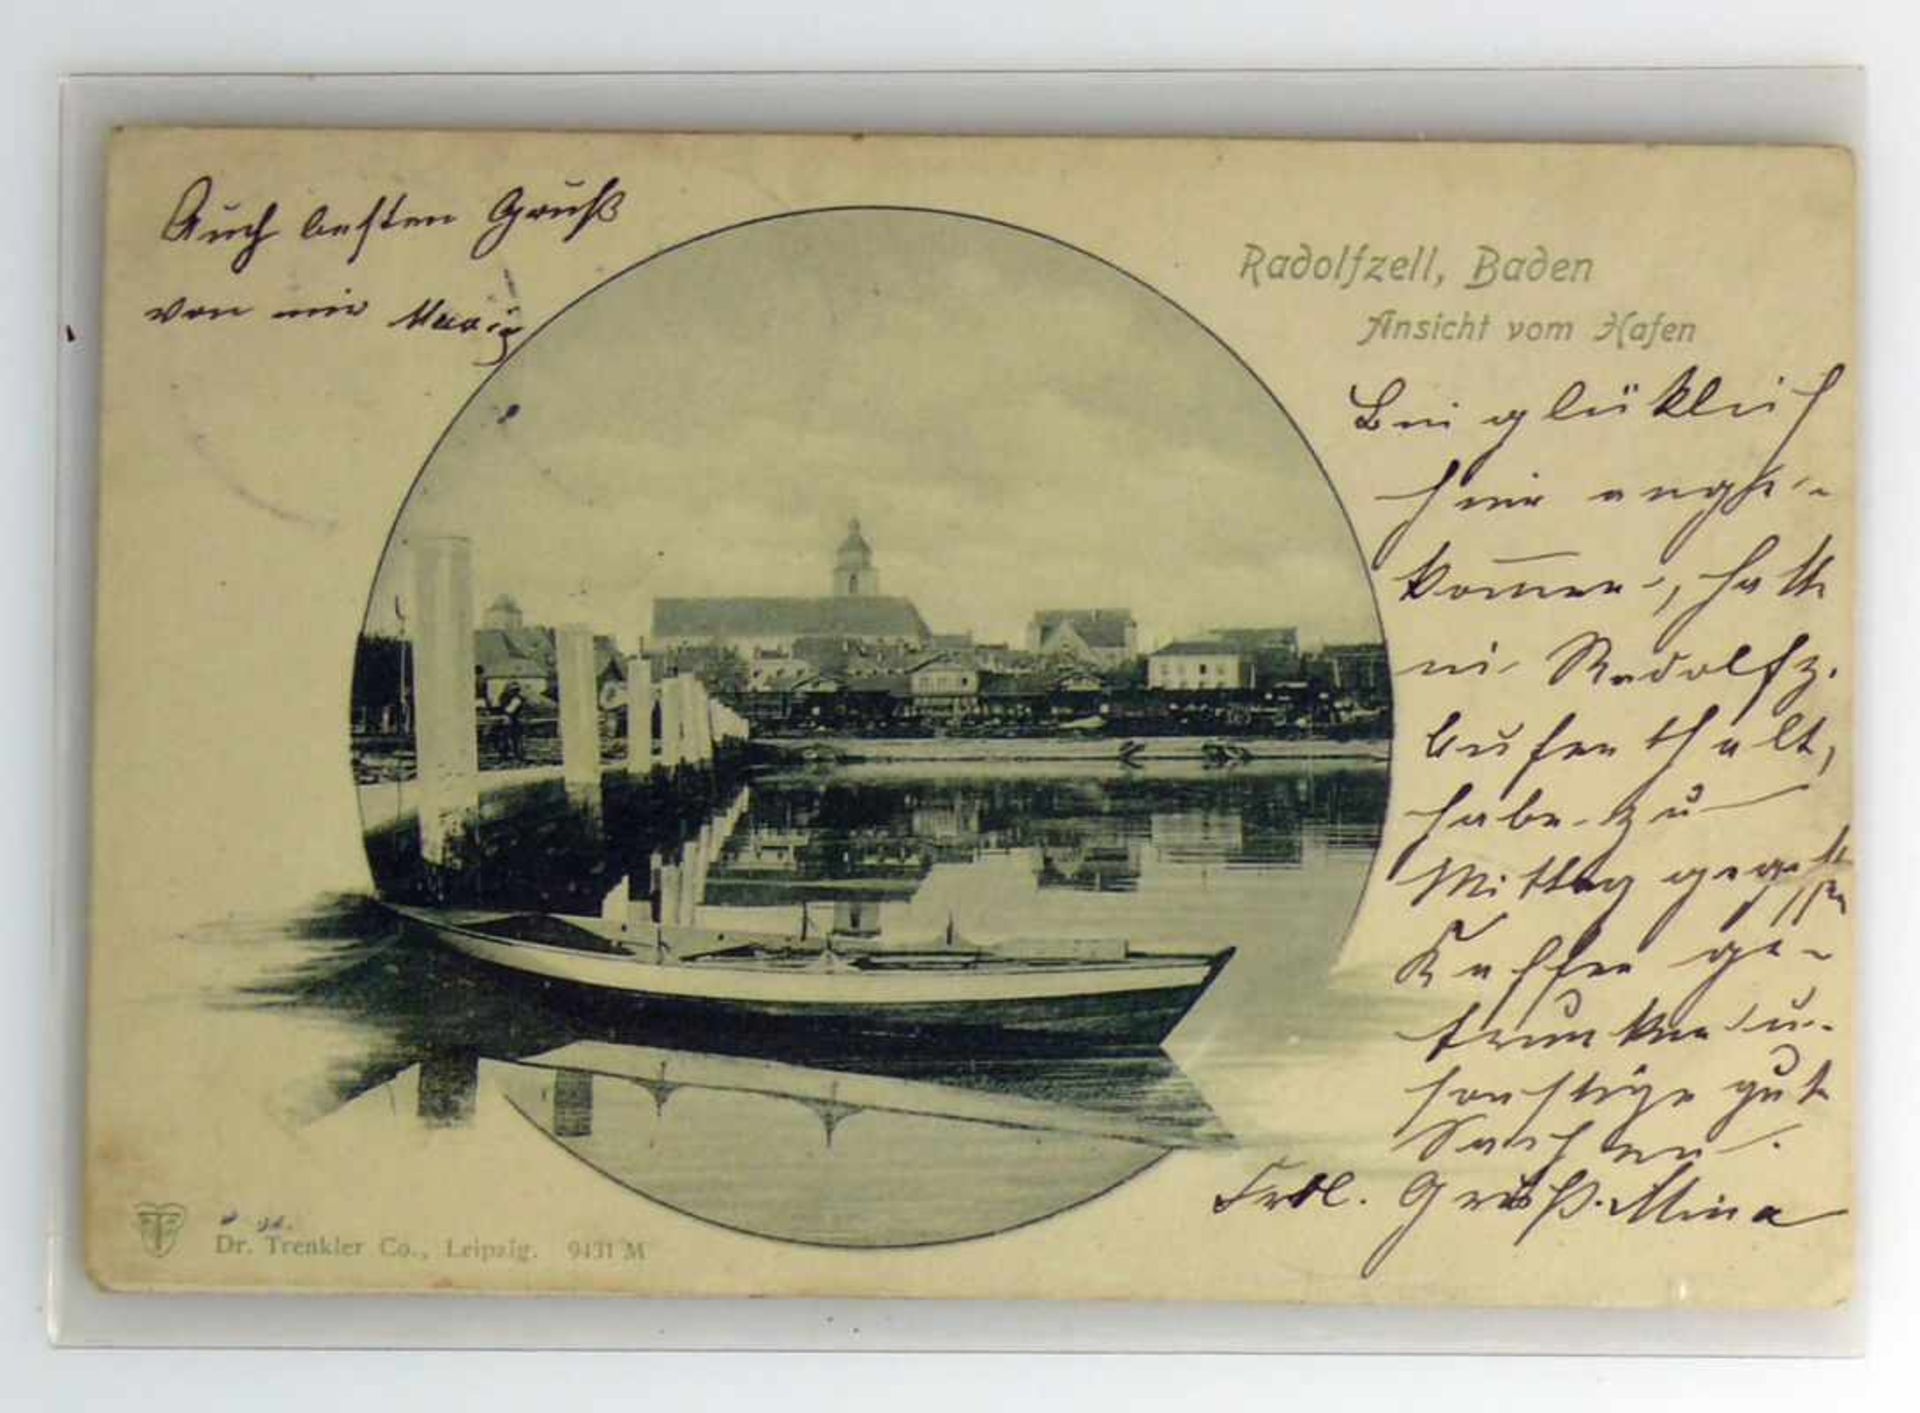 Auch besten Gruß
von mir Marie
Radolfzell, Baden
Ansicht vom Hafen
Bin glüklich
hier ange-
kommen, hatte
in Radolfz.
Aufenthalt,
habe zu
Mittag gegessen
Kaffee ge-
trunken u.
sonstige gute
Sachen.
Frdl. Gruß. Mina
Dr. Trenkler Co., Leipzig. 9431 M